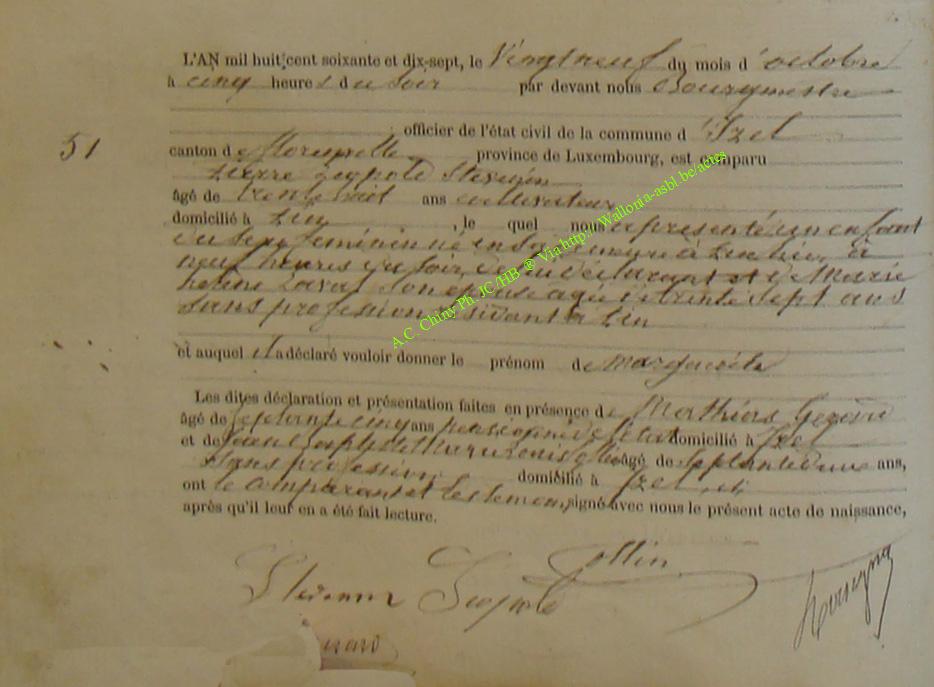 L'AN mil huit cent soixante et dix-sept, le Vingt neuf du mois d'octobre
à cinq heures du soir par devant nous Bourgmestre
officier de l'état civil de la commune d'Izel
51
canton de Florenville province de Luxembourg, est comparu
Pierre Léopold
âgé de trente huit ans cultivateur
domicilié à , le quel nous a présenté un enfant
du sexe féminin né en sa demeure à
neuf heures du soir, de lui déclarant et de Marie
son épouse âgée de trente sept ans
sans profession résidant à
et auquel il a déclaré vouloir donner le prénom de Marguerite
Les dites déclaration et présentation faites en présence de Mathias
âgé de septante cinq ans pensionné de l'état domicilié à Izel
et de Jean Joseph âgé de septante deux ans,
sans profession domicilié à Izel, et
ont le comparant et les témoins, signé avec nous le présent acte de naissance,
après qu'il leur en a été fait lecture.
Collin
Léopold
A.C. Chiny Ph. JC /HB @ Via http:// Wallonia-asbl.be/actes